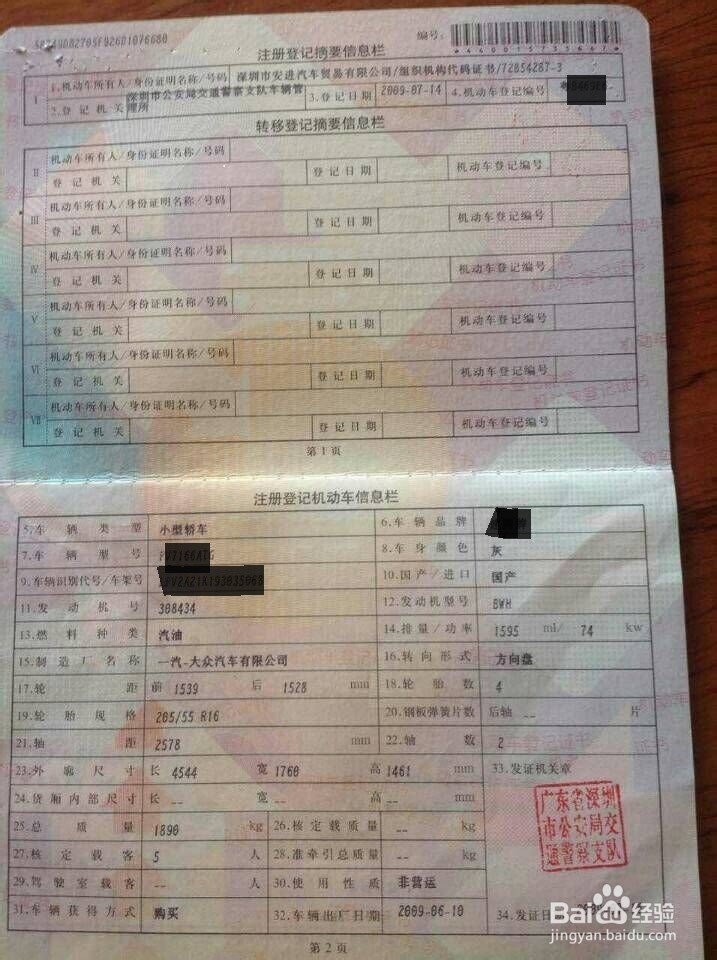 编号:
注册登记摘要信息栏
I 1.机动车所有人/身份证明名称/号码 深圳市安进汽车贸易有限公司/组织机构代码证书/72854287-3
2.登记机关 深圳市公安局交通警察支队车辆管理所 3.登记日期 2009-07-14 4.机动车登记编号
转移登记摘要信息栏
II 机动车所有人/身份证明名称/号码
登记机关 登记日期 机动车登记编号
III 机动车所有人/身份证明名称/号码
登记机关 登记日期 机动车登记编号
IV 机动车所有人/身份证明名称/号码
登记机关 登记日期 机动车登记编号
V 机动车所有人/身份证明名称/号码
登记机关 登记日期 机动车登记编号
VI 机动车所有人/身份证明名称/号码
登记机关 登记日期 机动车登记编号
VII 机动车所有人/身份证明名称/号码
登记机关 登记日期 机动车登记编号
第1页
注册登记机动车信息栏
5.车辆类型 小型轿车 6.车辆品牌
7.车辆型号 8.车身颜色 灰
9.车辆识别代号/车架号 10.国产/进口 国产
11.发动机号 308434 12.发动机型号 BWH
13.燃料种类 汽油 14.排量/功率 1595 ml/ 74 kw
15.制造厂名称 一汽-大众汽车有限公司 16.转向形式 方向盘
17.轮距 前 1539 后 1528 mm 18.轮胎数 4
19.轮胎规格 205/55 R16 20.钢板弹簧片数 后轴 -- 片
21.轴距 2578 mm 22.轴数 2
23.外廓尺寸 长 4544 宽 1760 高 1461 mm 33.发证机关章
24.货厢内部尺寸 长 -- 宽 -- 高 -- mm
广东省深圳
市公安局交
通警察支队
25.总质量 1890 kg 26.核定载质量 -- kg
27.核定载客 5 人 28.准牵引总质量 -- kg
29.驾驶室载客 -- 人 30.使用性质 非营运
31.车辆获得方式 购买 32.车辆出厂日期 2009-06-10 34.发证日期
第2页
Baidu经验
jingyan.baidu.com